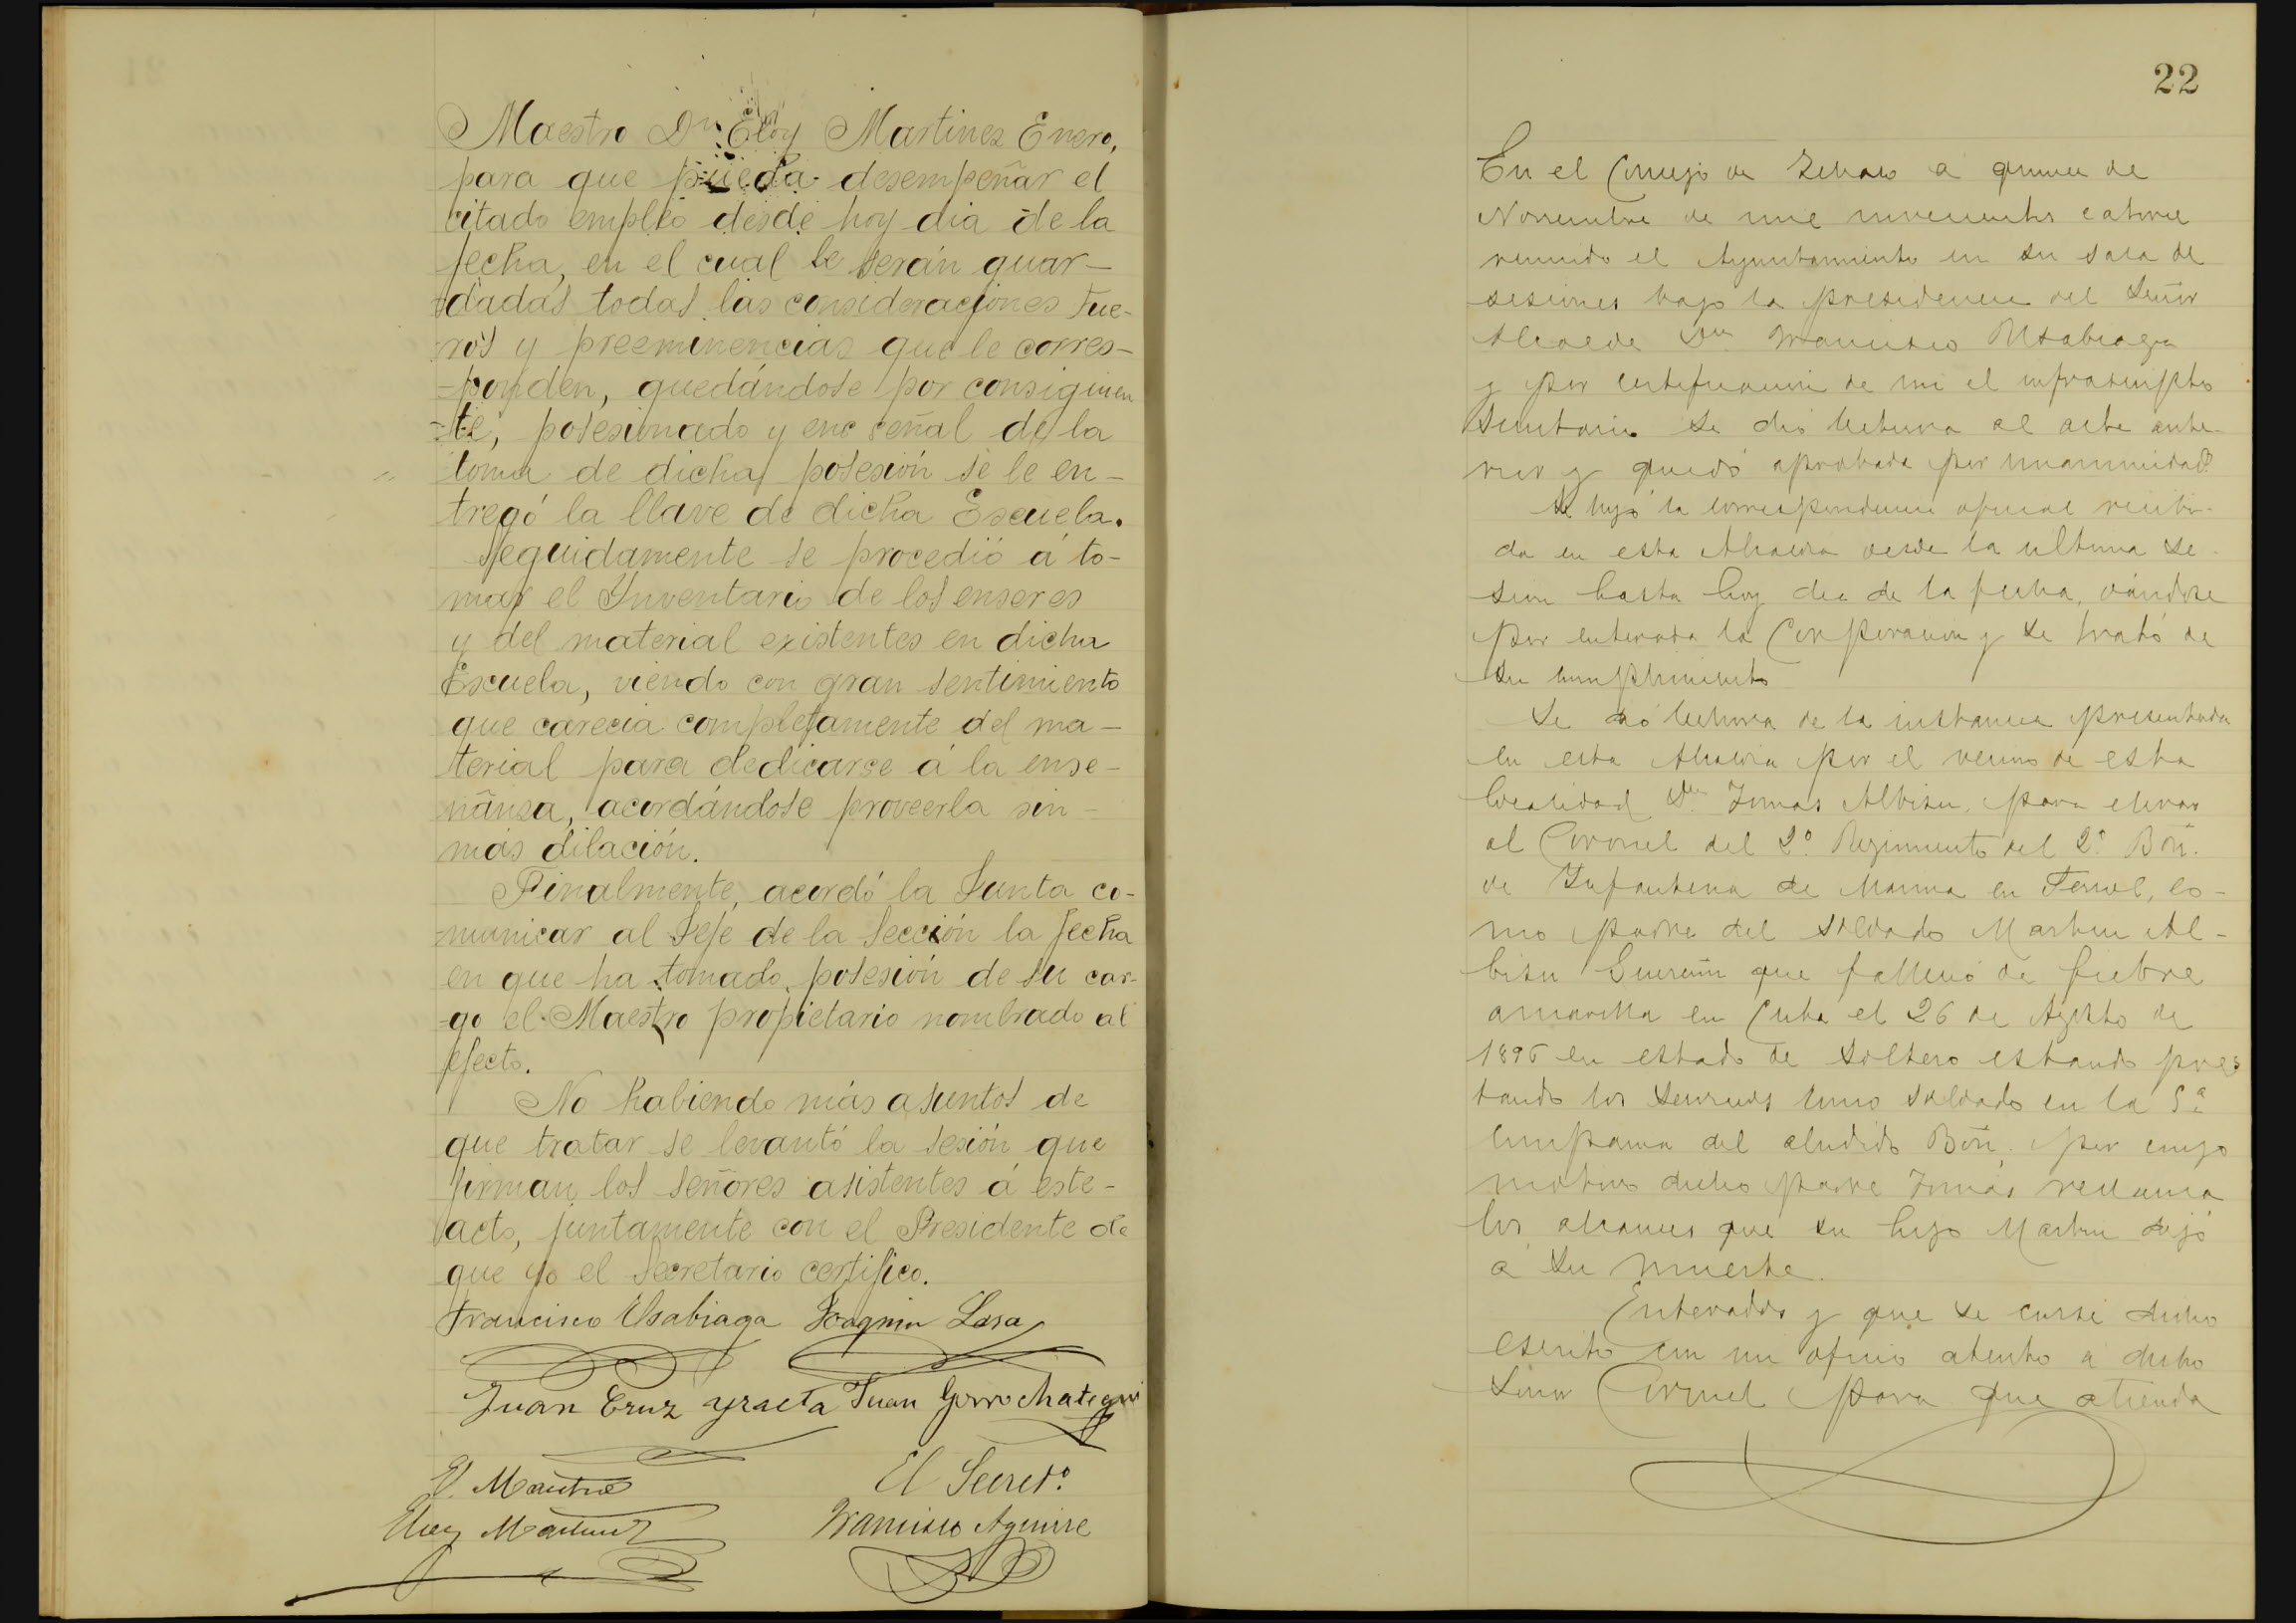 Maestro Dn Eloy Martinez Enero,
para que pueda desempeñar el
citado empleo desde hoy dia de la
fecha, en el cual le serán guar-
-dadas todas las consideraciones fue-
ros y preeminencias que le corres-
-ponden, quedándose por consiguien
-te, posesionado y enc señal de la
toma de dicha posesión se le en-
tregó la llave de dicha Escuela.
Seguidamente se procedió á to-
mar el Inventario de los enseres
y del material existentes en dicha
Escuela, viendo con gran sentimiento
que carecia completamente del ma-
terial para dedicarse á la ense-
ñanza, acordándose proveerla sin-
más dilación.
Finalmente, acordó la Junta co-
municar al Jefe de la Sección la fecha
en que ha tomado posesión de su car-
-go el Maestro propietario nombrado al
efecto.
No habiendo más asuntos de
que tratar se levantó la sesión que
firman los señores asistentes á este-
acto, juntamente con el Presidente de
que yo el Secretario certifico.
Francisco Usabiaga Joaquin Lasa
Juan Cruz Yraeta Juan Gorrochategui
El Maestro El Secret.º
Eloy Martinez Francisco Aguirre
22
En el Concejo de a quince de
Noviembre de mil novecientos catorce
reunido el Ayuntamiento en su sala de
sesiones bajo la presidencia del Señor
Alcalde Dn Francisco Usabiaga
y por certificacion de mi el infrascripto
Secretario se dió lectura al acta ante-
rior y quedó aprobada por unanimidad
Se leyó la correspondencia oficial recibi-
da en esta Alcaldia desde la ultima se-
sion hasta hoy dia de la fecha, dándose
por enterada la Corporacion y se trató de
su cumplimiento
Se dió lectura de la instancia presentada
en esta Alcaldia por el vecino de esta
localidad Dn Tomas Albisu, para elevar
al Coronel del 2º Regimiento del 2º Bon.
de Infanteria de Marina en Ferrol, co-
mo padre del soldado Martin Al-
bisu que falleció de fiebre
amarilla en Cuba el 26 de Agosto de
1896 en estado de soltero estando pres
tando los servicios como soldado en la 5ª
compania del aludido Bon, por cuyo
motivo dicho padre Tomás reclama
los alcances que su hijo Martin dejó
a su muerte.
Enterados y que se curse dicho
escrito con un oficio atento a dicho
Señor Coronel para que atienda